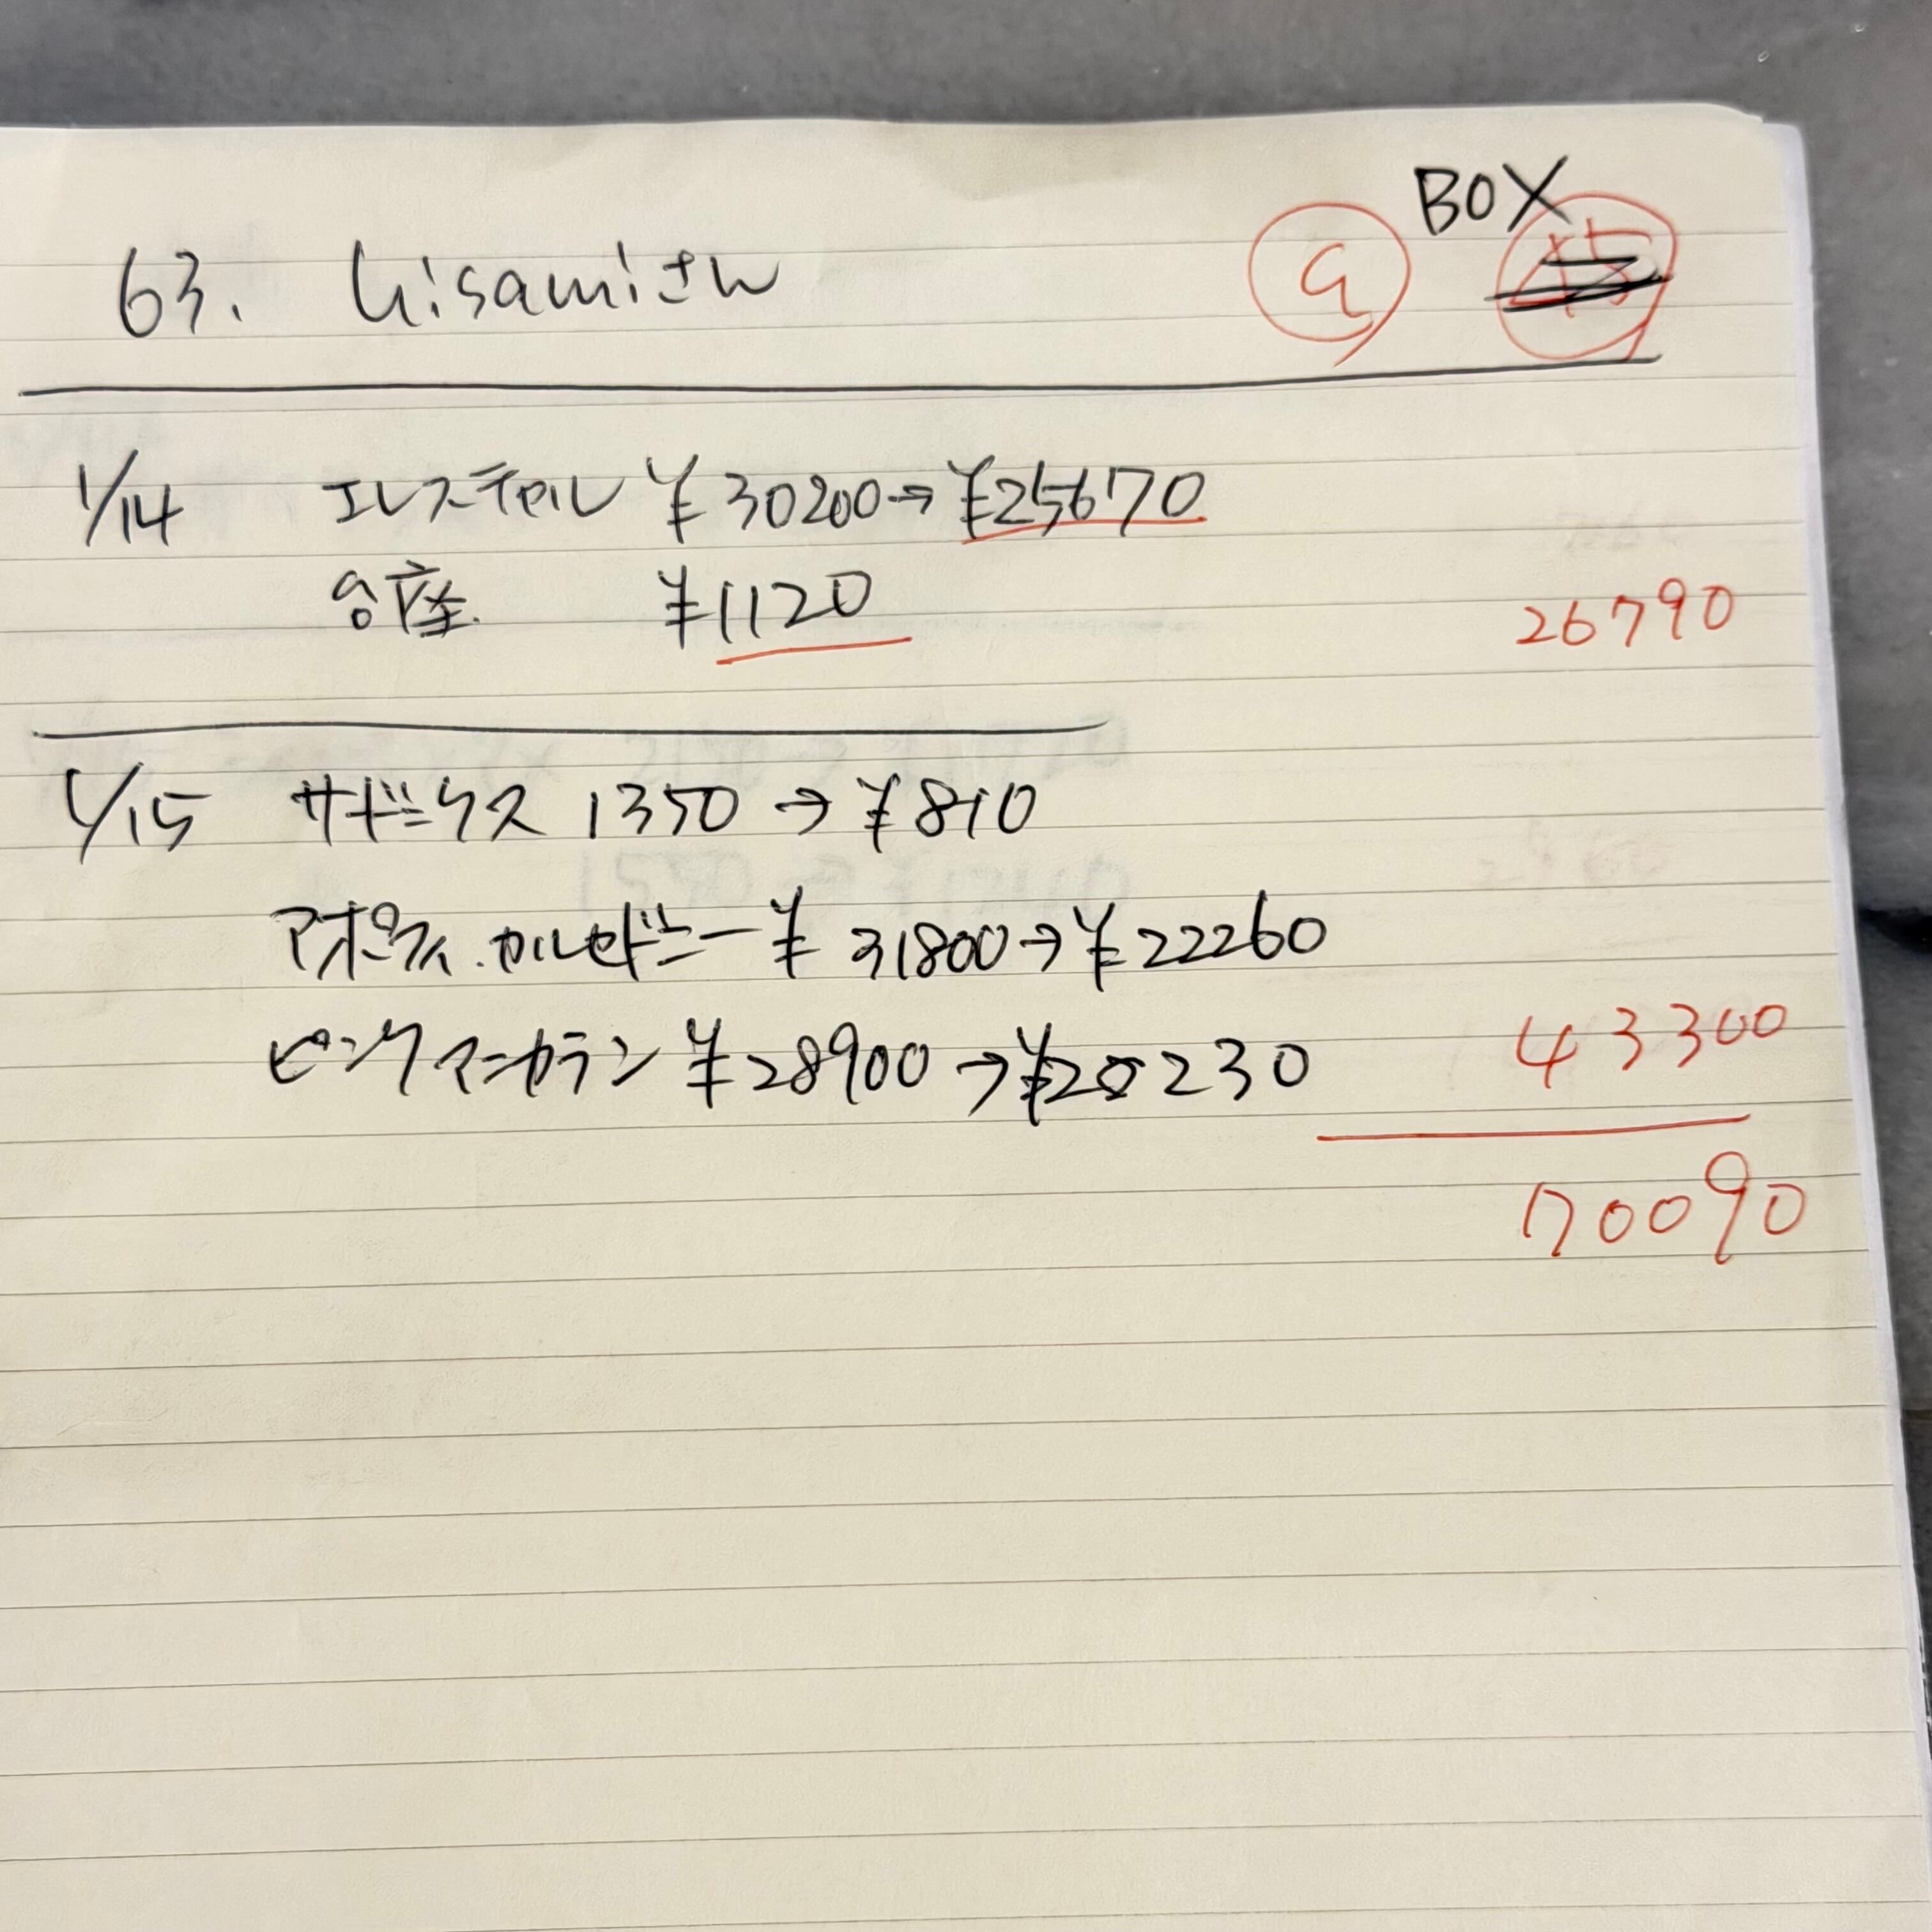 BOX
63. hisamiさん 9
1/14 エレスチャル ¥30200→¥25670
台座 ¥1120 26790
1/15 サドニクス 1350→¥810
アポフィ.カルセドニー ¥31800→¥22260
ピンクマニカラン ¥28900→¥20230 43300
70090